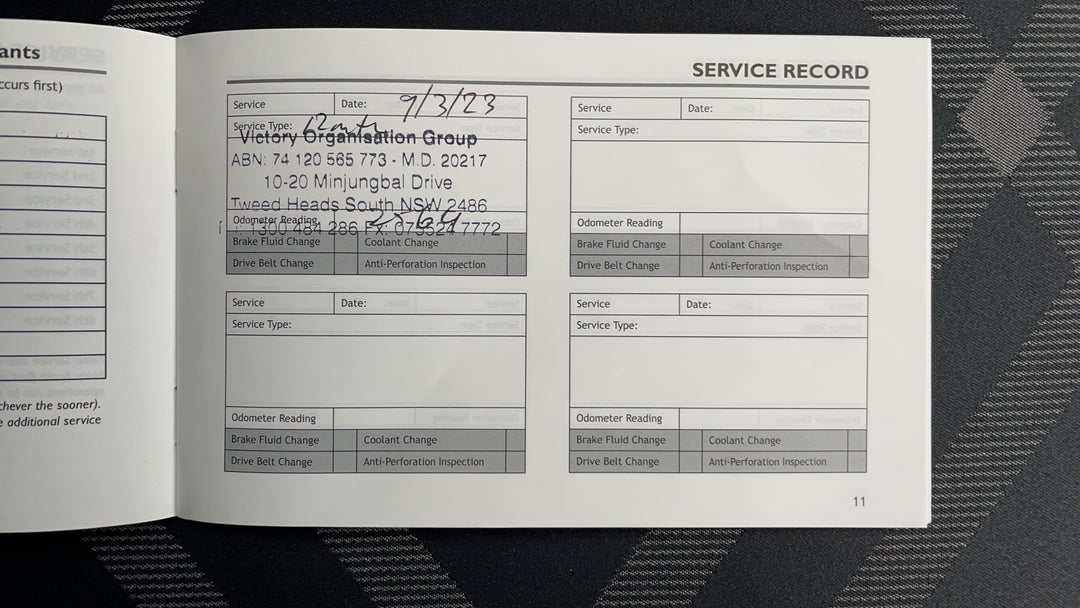 ants
ccurs first)
chever the sooner).
e additional service
SERVICE RECORD
Service Date: 9/3/23
Service Type: 12 mth
Victory Organisation Group
ABN: 74 120 565 773 - M.D. 20217
10-20 Minjungbal Drive
Tweed Heads South NSW 2486
Odometer Reading
1300 484 286 FX: 075524 7772
Brake Fluid Change Coolant Change
Drive Belt Change Anti-Perforation Inspection
Service Date:
Service Type:
Odometer Reading
Brake Fluid Change Coolant Change
Drive Belt Change Anti-Perforation Inspection
Service Date:
Service Type:
Odometer Reading
Brake Fluid Change Coolant Change
Drive Belt Change Anti-Perforation Inspection
Service Date:
Service Type:
Odometer Reading
Brake Fluid Change Coolant Change
Drive Belt Change Anti-Perforation Inspection
11